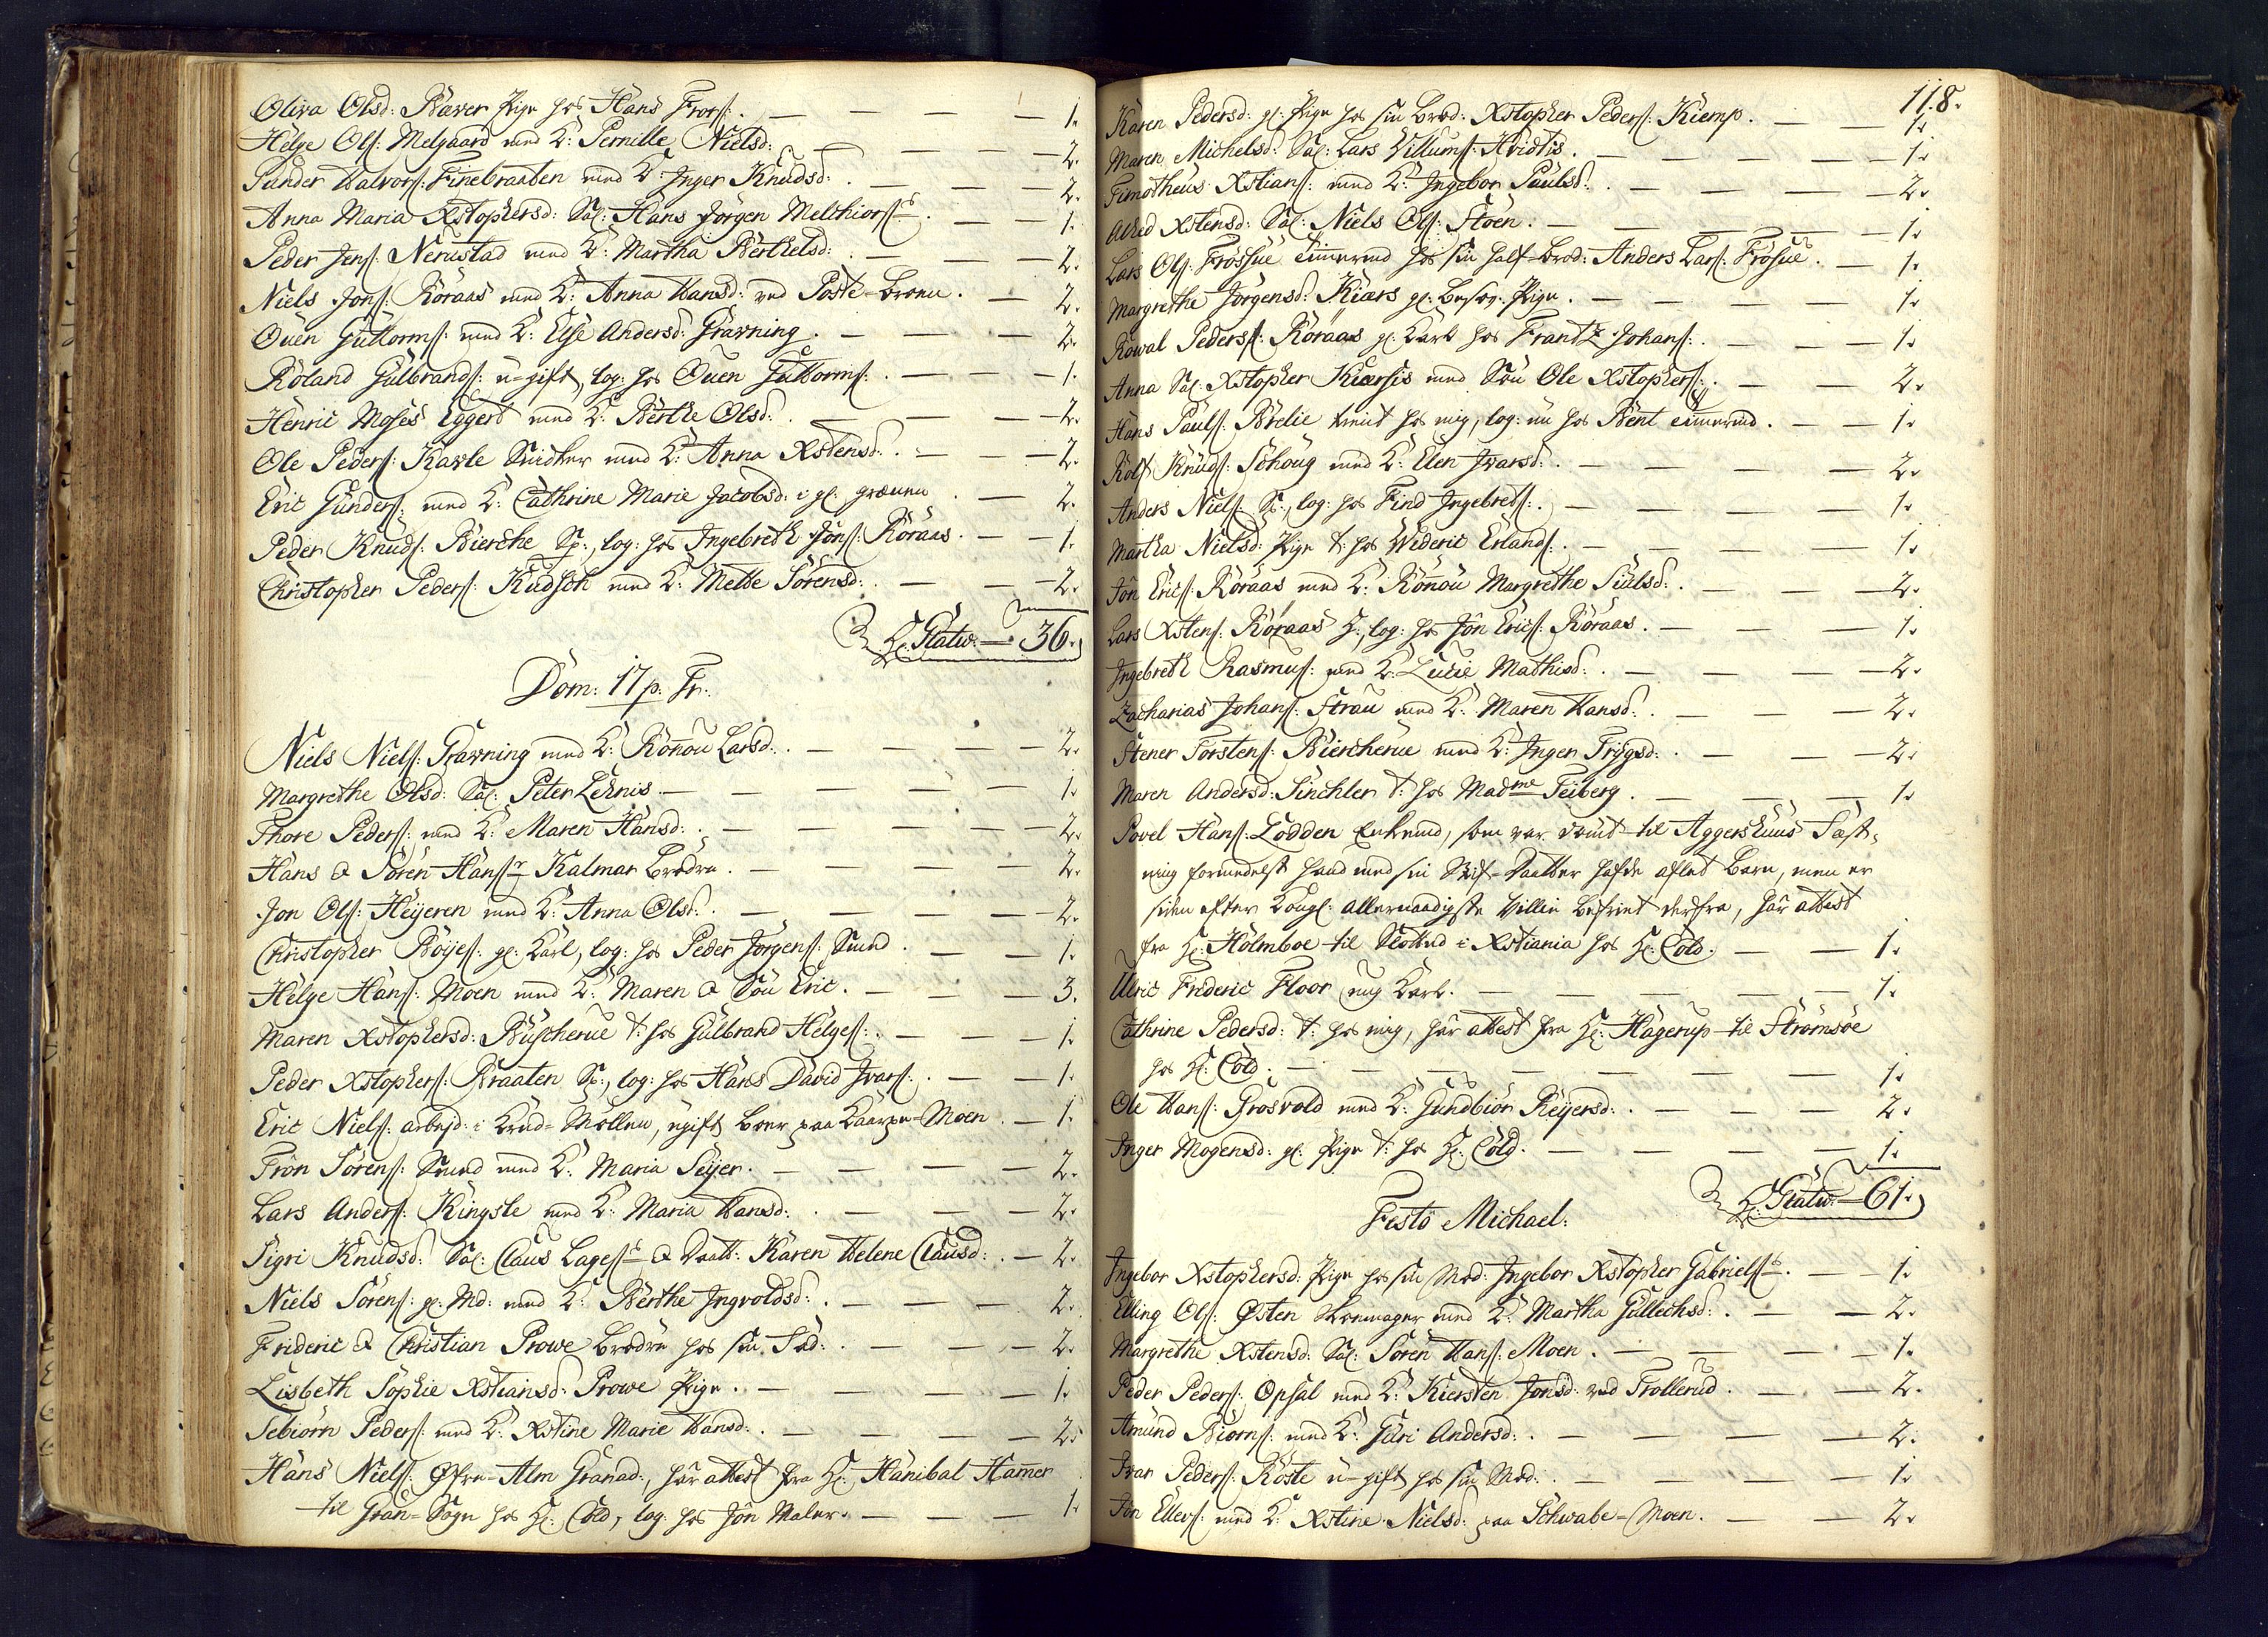 Oliva Olsd: Bæver Pige hos Hans Frors: — 1.
Helge Ols: Melgaard med K: Pernille Nielsd: — 2.
Gunder Halvors: Finebraaten med K: Inger Knudsd: — 2.
Anna Maria Xstophersd: Sal: Hans Jörgen Melchiors: — 1.
Peder Jens: Nerustad med K: Martha Berthelsd: — 2.
Niels Jons: Röraas med K: Anna Hansd: ved Poste-Broen. — 2.
Ouen Guttorms: med K: Else Andersd: Gravning. — 2.
Roland Gulbrands: u-gift, log: hos Ouen Guttorms: — 1.
Henric Moses Eggert med K: Berthe Olsd: — 2.
Ole Peders: Kavle Snidker med K: Anna Xstensd: — 2.
Eric Gunders: med K: Cathrine Marie Jacobsd: i gl: — 2.
Peder Knuds: Bierche Sp:, log: hos Ingebreth Jöns: Röraas. — 1.
Christopher Peders: Kudsch med K: Mette Sörensd: — 2.
H: Statw: — 36.
Dom: 17 p: Tr:
Niels Niels: Gravning med K: Rönnou Larsd: — 2.
Margrethe Olsd: Sal: Peter Lehnis. — 1.
Thore Peders: med K: Maren Hansd: — 2.
Hans & Sören Hans: Kalmar Brödre. — 2.
Jon Ols: Heyeren med K: Anna Olsd: — 2.
Christopher Böyes: gl: Karl, log: hos Peder Jörgens: Smed. — 1.
Helge Hans: Moen med K: Maren & Sön Eric. — 3.
Maren Xstophersd: Buscherue t: hos Gulbrand Helges: — 1.
Peder Xstophers: Braaten Sp:, log: hos Hans David Ivars: — 1.
Eric Niels: arbejd: i Krud-Möllen, ugift boer paa Moen. — 1.
Trön Sörens: Smed med K: Maria Seyer. — 2.
Lars Anders: Kingsle med K: Maria Hansd: — 2.
Sigri Knudsd: Sal: Claus Lages: & Daatt: Karen Helene Clausd: — 2.
Niels Sörens: gl: Md: med K: Berthe Ingvoldsd: — 2.
Frideric & Christian Prowe Brödre hos sin Fad: — 2.
Lisbeth Sophie Xstiansd: Prowe Pige. — 1.
Sebiörn Peders: med K: Xstine Marie Hansd: — 2.
Hans Niels: Öfre-Alm Granad:, har attest fra H: Hanibal Hamer
til Gran-Sogn hos H: Cold, log: hos Jön Maler. — 1.
118.
Karen Pedersd: gl: Pige hos sin Brod: Xstopher Peders: Kiemp. — 1.
Maren Michelsd: Sal: Lars Villums: Hvidtis. — 1.
Timotheus Xstians: med K: Ingebor Paulsd: — 2.
Alhed Xstensd: Sal: Niels Ols: Stoen. — 1.
Lars Ols: Frössue Tömmermd hos sin half-Brod: Anders Lars: Frösue. — 1.
Margrethe Jörgensd: Kiærs gl: Besov: Pige. — 1.
Rowal Peders: Röraas gl: Karl hos Frantz Johans: — 1.
Anna Sal: Xstopher Kiærsis med Sön Ole Xstophers: — 2.
Hans Pauls: Brelie tient hos mig, log: nu hos Bent Tömmermd. — 1.
Rolf Knuds: Schoug med K: Elen Ivarsd: — 2.
Anders Niels: Sp:, log: hos Find Ingebrets: — 1.
Martha Nielsd: Pige t: hos Wideric Erlands: — 1.
Jön Erics: Röraas med K: Rönnou Margrethe Siulsd: — 2.
Lars Xstens: Röraas H:, log: hos Jön Erics: Röraas. — 1.
Ingebreth Rasmus: med K: Lucie Mathisd: — 2.
Zacharias Johans: Strau med K: Maren Hansd: — 2.
Stener Torstens: Biercherue med K: Inger Trygsd: — 2.
Maren Andersd: Sinchler t: hos Madme Feiberg. — 1.
Povel Hans: Lodden Enkemd, som var dömt til Aggershuus Fæst-
ning formedelst hand med sin Stif-Daatter hafde aflet Barn, men er
siden efter Kongl: allernaadigste Villie befriet derfra, har attest
fra H: Holmboe til Slottet i Xstiania hos H: Cold. — 1.
Ulric Frideric Floor ung Karl. — 1.
Cathrine Pedersd: t: hos mig, har attest fra H: Hagerup til Strömsöe
hos H: Cold. — 1.
Ole Hans: Grosvold med K: Gundbiör Reyersd: — 2.
Inger Mogensd: gl: Pige t: hos H: Cold. — 1.
H: Statw: — 61.
Festo Michael:
Ingebor Xstophersd: Pige hos sin Mod: Ingebor Xstopher Gabriels: — 1.
Elling Ols: Østen Skoemager med K: Martha Gullichsd: — 2.
Margrethe Xstensd: Sal: Sören Hans: Moen. — 1.
Peder Peders: Opsal med K: Kiersten Jonsd: ved Trollerud. — 2.
Amund Biörns: med K: Guri Andersd: — 2.
Ivar Peders: Röste u-gift hos sin Mod: — 1.
Jön Ellers: med K: Xstine Nielsd: paa Schwabe-Moen. — 2.